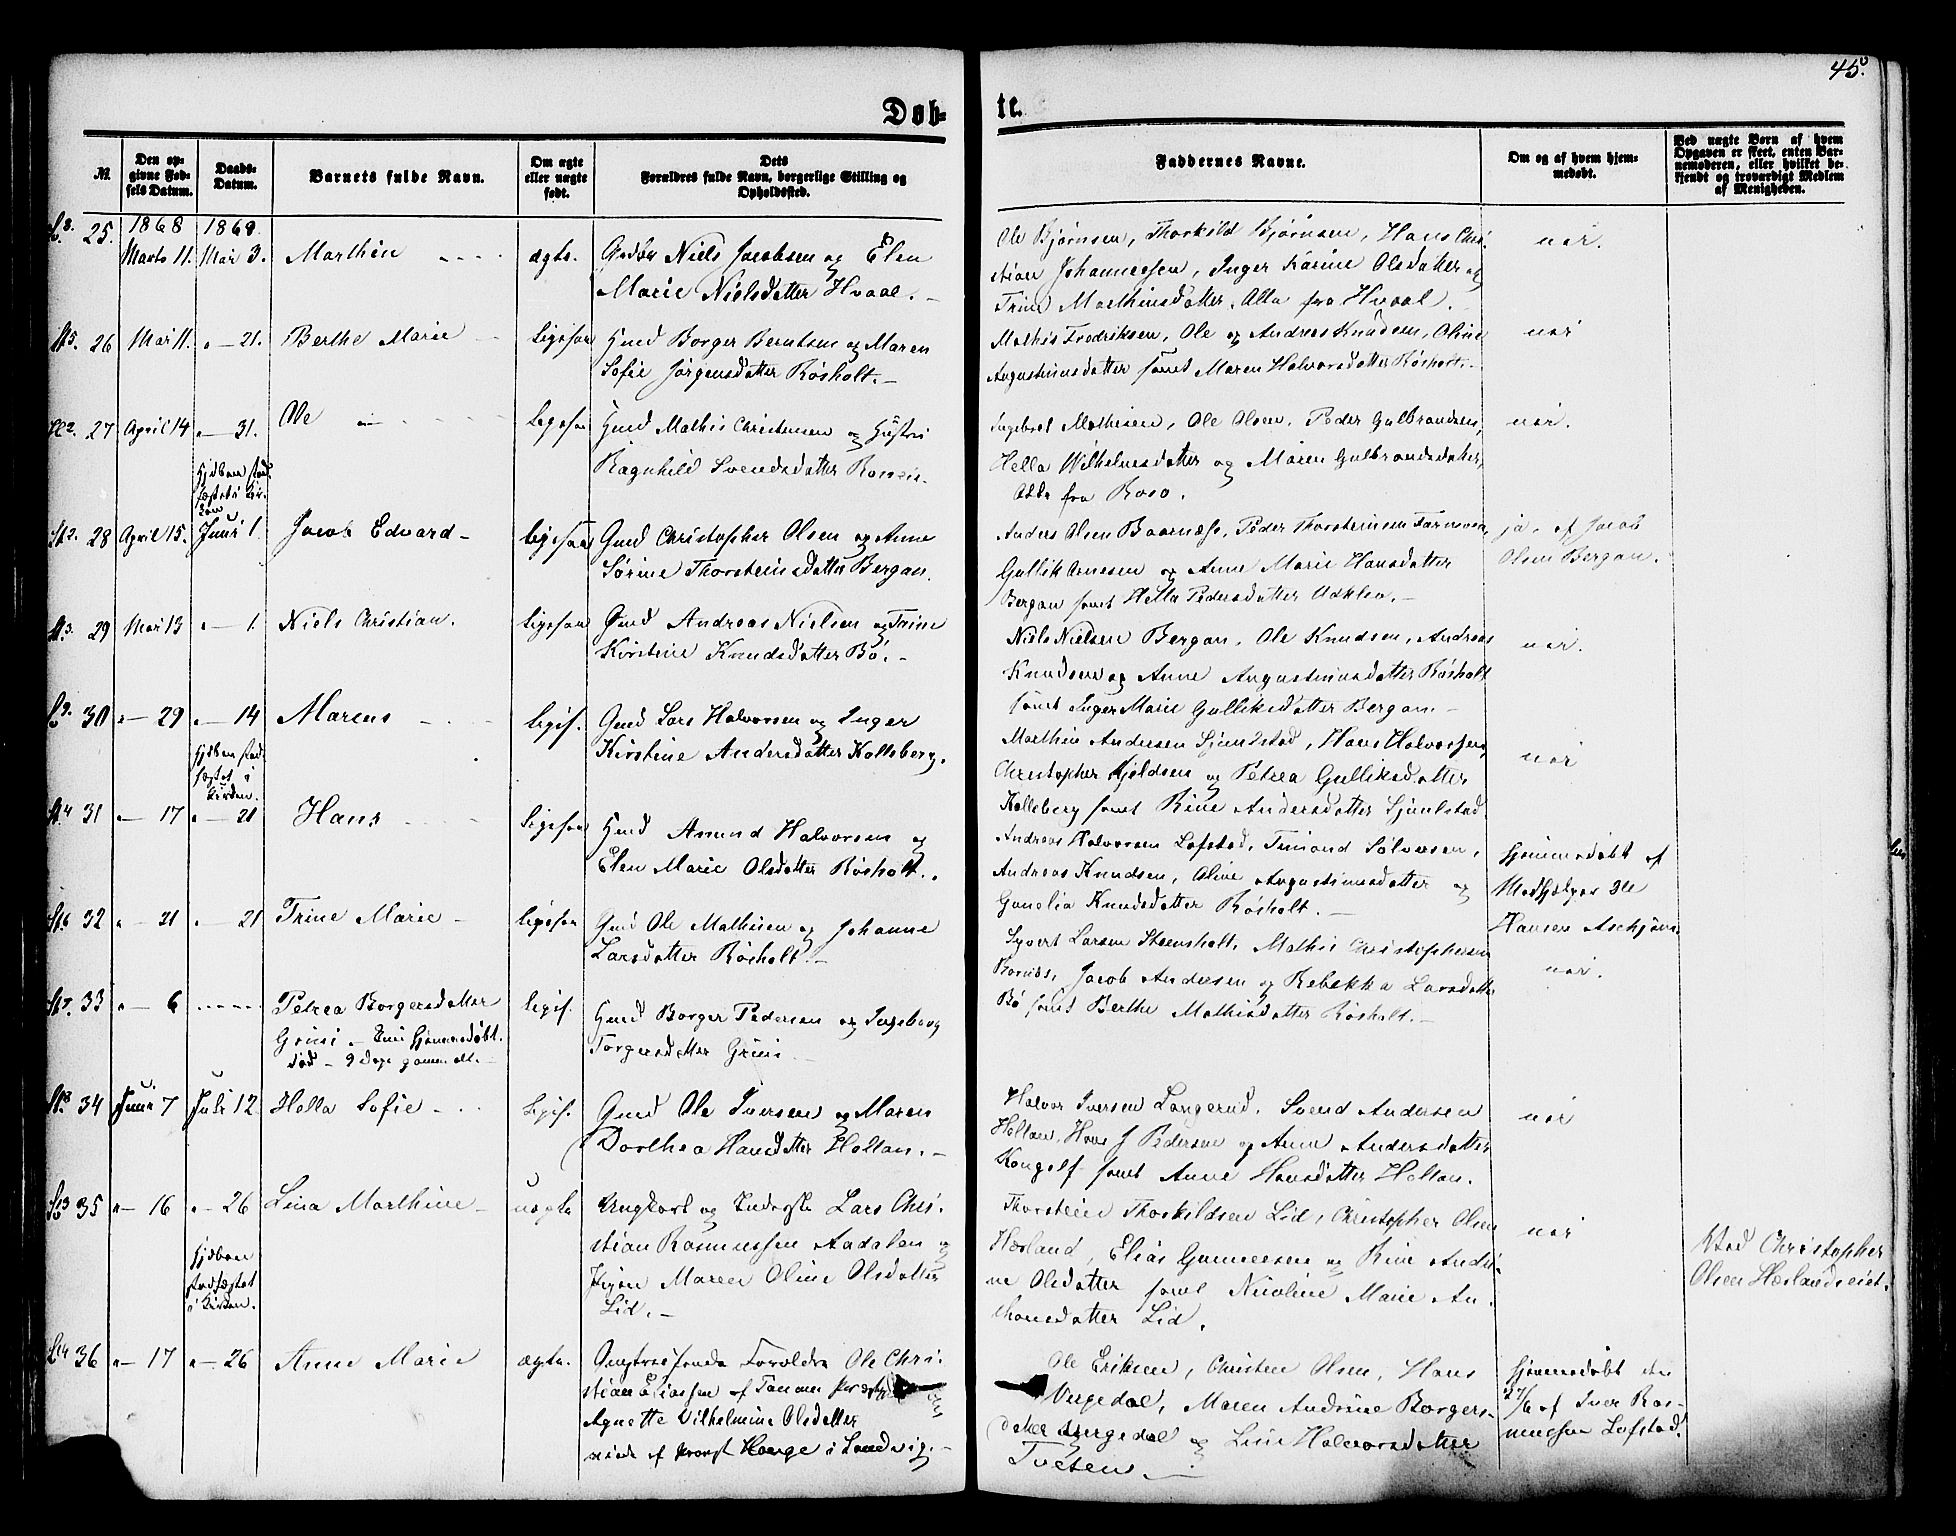 45.
Døb-
te.
№.
Den op-
givne Fød-
sels Datum.
Daabs-
Datum.
Barnets fulde Navn.
Om ægte
eller uægte
født.
Dets
Forældres fulde Navn, borgerlige Stilling og
Opholdssted.
Faddernes Navne.
Om og af hvem hjem-
medøbt.
Ved uægte Børn af hvem
Opgaven er skeet, enten Bar-
nemoderen, eller hvilket be-
kjendt og troværdigt Medlem
af Menigheden.
1868 1869.
25. Marts 11. Mai 3. Marthin ægte. Niels Jacobsen og Elen
Marie Nielsdatter Hvaal.
Ole Bjørnsen, Thorkild Bjørnsen, Hans Chri-
stian Johannessen, Inger Karine Olsdatter og
Trine Marthinsdatter. Alle fra Hvaal.
nei.
26 Mai 11. " — 21. Berthe Marie ligesaa Gmd Borger Berntsen og Maren
Sofie Jørgensdatter Røsholt.
Mathis Fredriksen, Ole og Andreas Knudsen, Oline
Augustinusdatter samt Maren Halvorsdatter Røsholt.
nei
27 April 14 " — 31. Ole ligesaa Gmd Mathis Christensen og Hustru
Ragnhild Svendsdatter
Ingebret Mathisen, Ole Olsen, Peder Gulbrandsen,
Hella Wilhelmsdatter og Maren Gulbrandsdatter,
Alle fra
nei.
Hjdben stad-
fæstet i Kir-
ken
28 April 15. Juni 1. Jacob Edvard ligesaa Gmd Christopher Olsen og Anne
Sørine Thorsteinsdatter Bergan.
Anders Olsen Baarnæss, Peder Thorsteinsen
Gullik Arnesen og Anne Marie Hansdatter
Bergan samt Hella Pedersdatter
ja, af Jacob
Olsen Bergan.
29 Mai 13 " — 1. Niels Christian. ligesaa Gmd Andreas Nielsen og Trine
Kirstine Knudsdatter Bø.
Niels Nielsen Bergan, Ole Knudsen, Andreas
Knudsen og Anne Augustinusdatter Røsholt
samt Inger Marie Gulliksdatter Bergan.
nei.
30 " — 29 " — 14 Marens liges. Gmd Lars Halvorsen og Inger
Kirstine Andersdatter Kolleberg.
Marthin Andersen Sjunlstad, Hans Halvorsen,
Christopher Kjeldsen og Petrea Gulliksdatter
Kolleberg samt Rine Andersdatter Sjunlstad.
nei
Hjdben stad-
fæstet i
Kirken.
31 " — 17 " — 21 Hans ligesaa Gmd Amund Halvorsen og
Elen Marie Olsdatter Røsholt.
Andreas Halvorsen Lofstad, Sølvesen,
Andreas Knudsen, Oline Augustinusdatter og
Gunelia Knudsdatter Røsholt.
hjemmedøbt af
Medhjelper Ole
Hansen
32 " — 21 " — 21 Trine Marie ligesaa Gmd Ole Mathisen og Johanne
Larsdatter Røsholt.
Syvert Larsen Steensholt, Mathis Christophersen
Jacob Andersen og Rebekka Larsdatter
Bø samt Berthe Mathisdatter Røsholt.
nei.
33 " — 6 Petrea Borgersdatter ligis.
hjemmedøbt.
død — 9 Dage gammelt.
Gmd Borger Pedersen og Ingeborg
Torgersdatter
34 Juni 7 Juli 12 Hella Sofie ligis. Gmd Ole Iversen og Maren
Dorthea Hansdatter Holtan.
Halvor Iversen Langerud, Svend Andersen
Holtan, Hans J Pedersen og Anne Andersdatter
Kongelf samt Anne Hansdatter Holtan.
nei
35 " — 16 " — 26 Lina Marthine uægte Ungkarl og Inderste Lars Chri-
stian Rasmussen Aadalen og
Pigen Maren Oline Olsdatter
Lid.
Thorstein Thorkildsen Lid, Christopher Olsen
Hæsland, Elias Gunnersen og Rine Andri-
ne Olsdatter samt Nicoline Marie An-
thonsdatter Lid.
nei
Ved Christopher
Olsen Hæslandseiet.
Hjdben
stadfæstet
i Kirken.
36 " — 17 " — 26 Anne Marie ægte. Omstreifende Forældre Ole Chri-
stian Eliassen af
Agnette Vilhelmine Olsdatter
viede af Provst Hauge i
Ole Eriksen, Christen Olsen, Hans
Vergedal, Maren Andrine Borgers-
datter Vergedal og Line Halvorsdatter
Tveten
hjemmedøbt den
27/6 af Iver Ras-
mussen Lofstad.